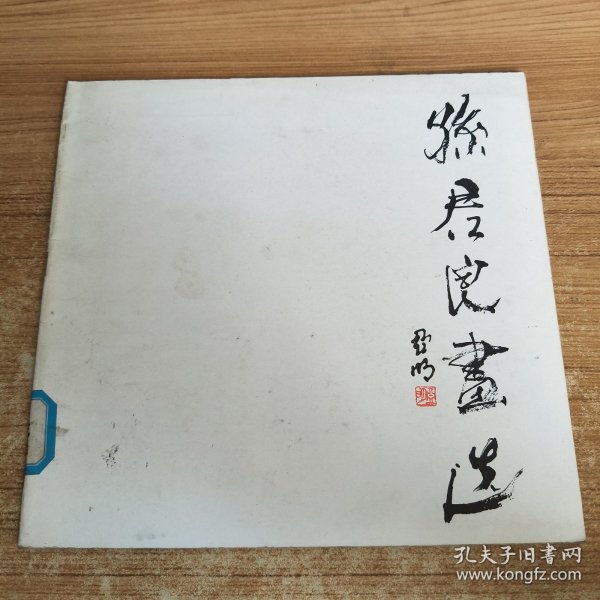 孙君良画选
亚明
孔夫子旧书网
www.kongfz.com